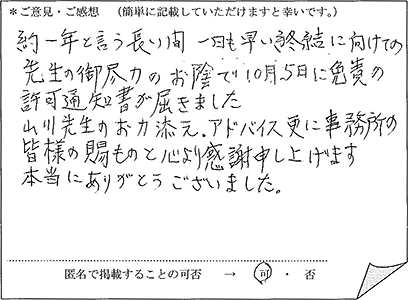 *ご意見・ご感想 (簡単に記載していただけますと幸いです。)
約一年と言う長い間 一日も早い終結に向けての
先生の御尽力のお陰で10月5日に免責の
許可通知書が届きました
山川先生のお力添え、アドバイス更に事務所の
皆様の賜ものと心より感謝申し上げます
本当にありがとうございました。
匿名で掲載することの可否 → 可 ・ 否